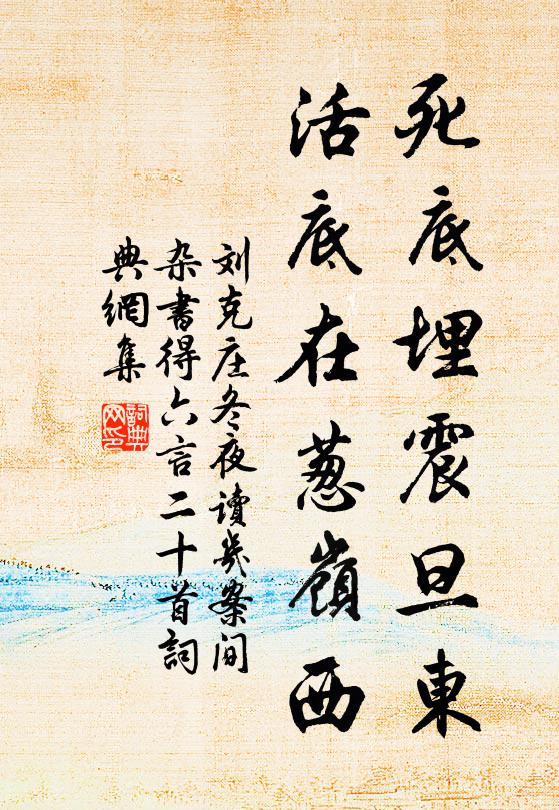 死底埋震旦東
活底在葱嶺西
刘克庄冬夜讀几案间
杂書得六言二十首詞
典網集
詞典
网印